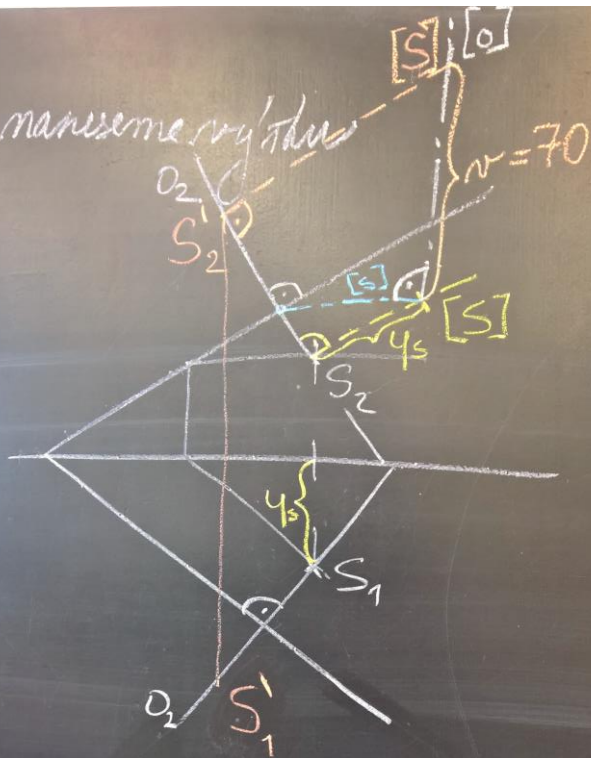 [S'] [o]
naneseme výšku
v=70
o₂
S'₂
[s]
[S]
y_s
S₂
y_s
S₁
o₂
S'₁